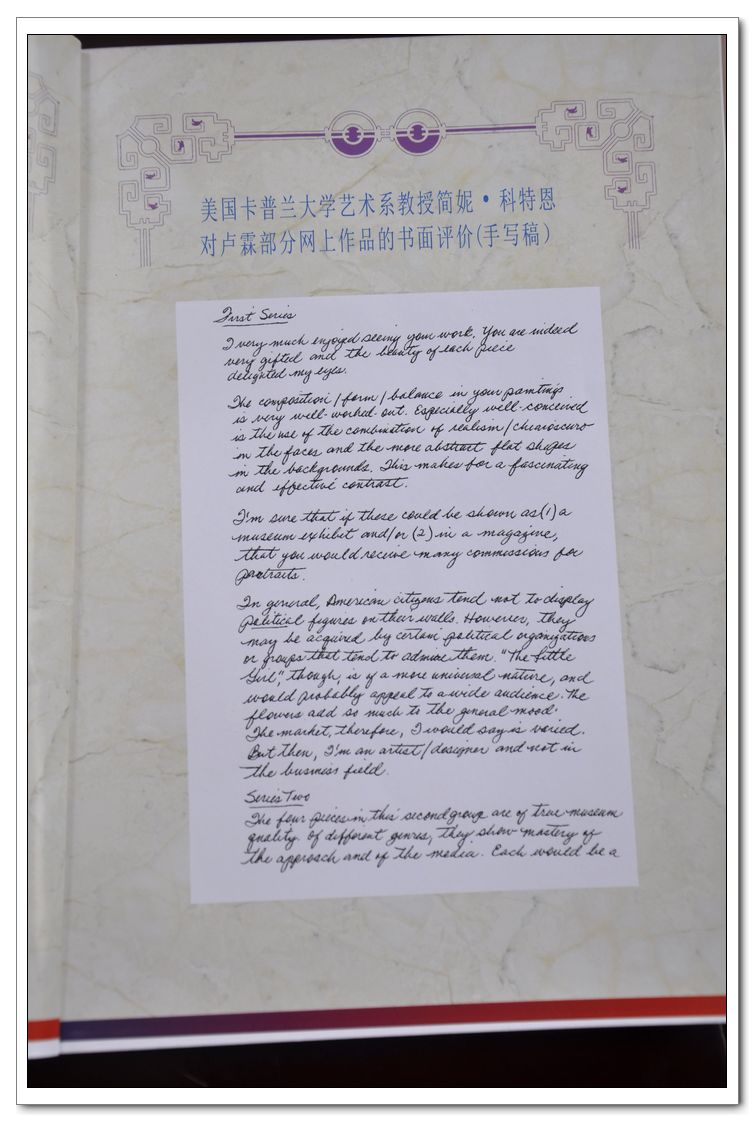 美国卡普兰大学艺术系教授简妮·科特恩
对卢霖部分网上作品的书面评价(手写稿)
First Series
I very much enjoyed seeing your work. You are indeed
very gifted and the beauty of each piece
delighted my eyes.
The composition/form/balance in your paintings
is very well-worked out. Especially well-conceived
is the use of the combination of realism/chiaroscuro
in the faces and the more abstract flat shapes
in the backgrounds. This makes for a fascinating
and effective contrast.
I'm sure that if these could be shown as (1) a
museum exhibit and/or (2) in a magazine,
that you would receive many commissions for
portraits.
In general, American citizens tend not to display
political figures on their walls. However, they
may be acquired by certain political organizations
or groups that tend to admire them. "The Little
Girl," though, is of a more universal nature, and
would probably appeal to a wide audience. The
flowers add so much to the general mood.
The market, therefore, I would say is varied.
But then, I'm an artist/designer and not in
the business field.
Series Two
The four pieces in this second group are of true museum
quality. Of different genres, they show mastery of
the approach and of the media. Each would be a